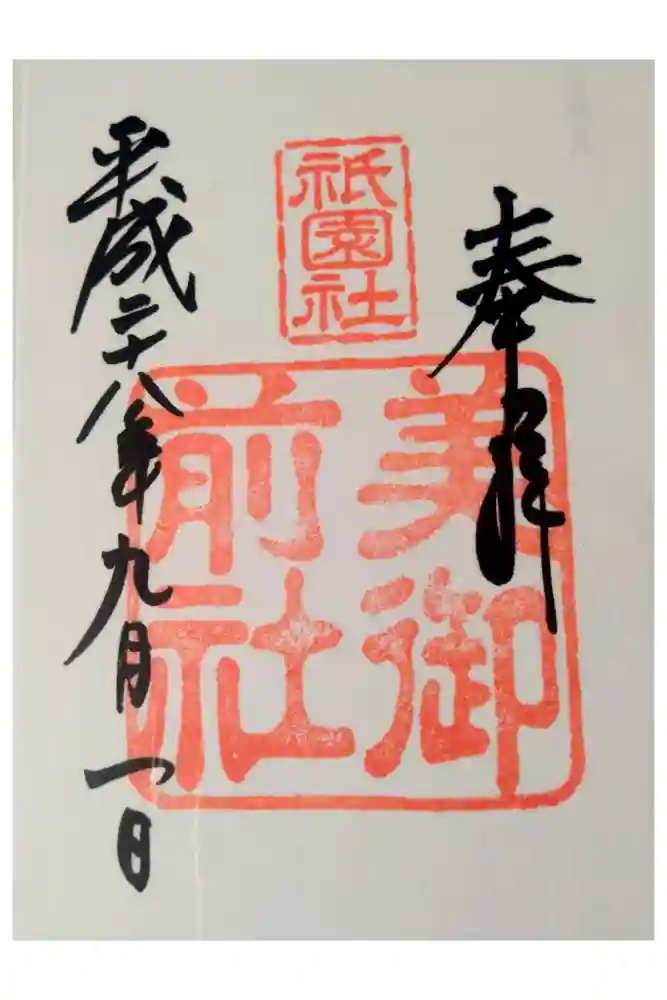 奉拝
祇園社
美御
前社
平成二十八年九月一日